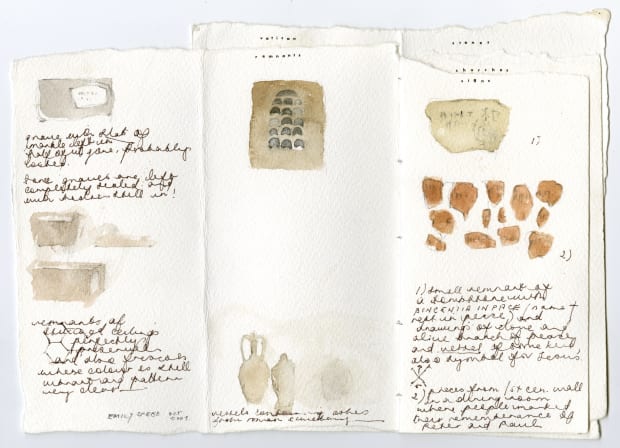 vatican
remnants
stones
churches
signs
grave with slab of
marble left in
half of it gone, probably
looted.
Some graves are left
completely sealed off
with skeleton still in!
remnants of
stuccoed ceilings
perfectly
preserved
and also frescoes
where colour is still
vibrant and pattern
very clear
EMILY SPEED OCT
vessels containing ashes
from roman
1)
2)
1) small remnant of
a tombstone with
BINCENTIA IN PACE (name +
rest in peace) and
drawings of dove and
olive branch of peace
and vessel of some kind
also symbol for Jesus
2) pieces from 1st cen. wall
in a dining room
where people marked
their remembrance of
Peter and Paul